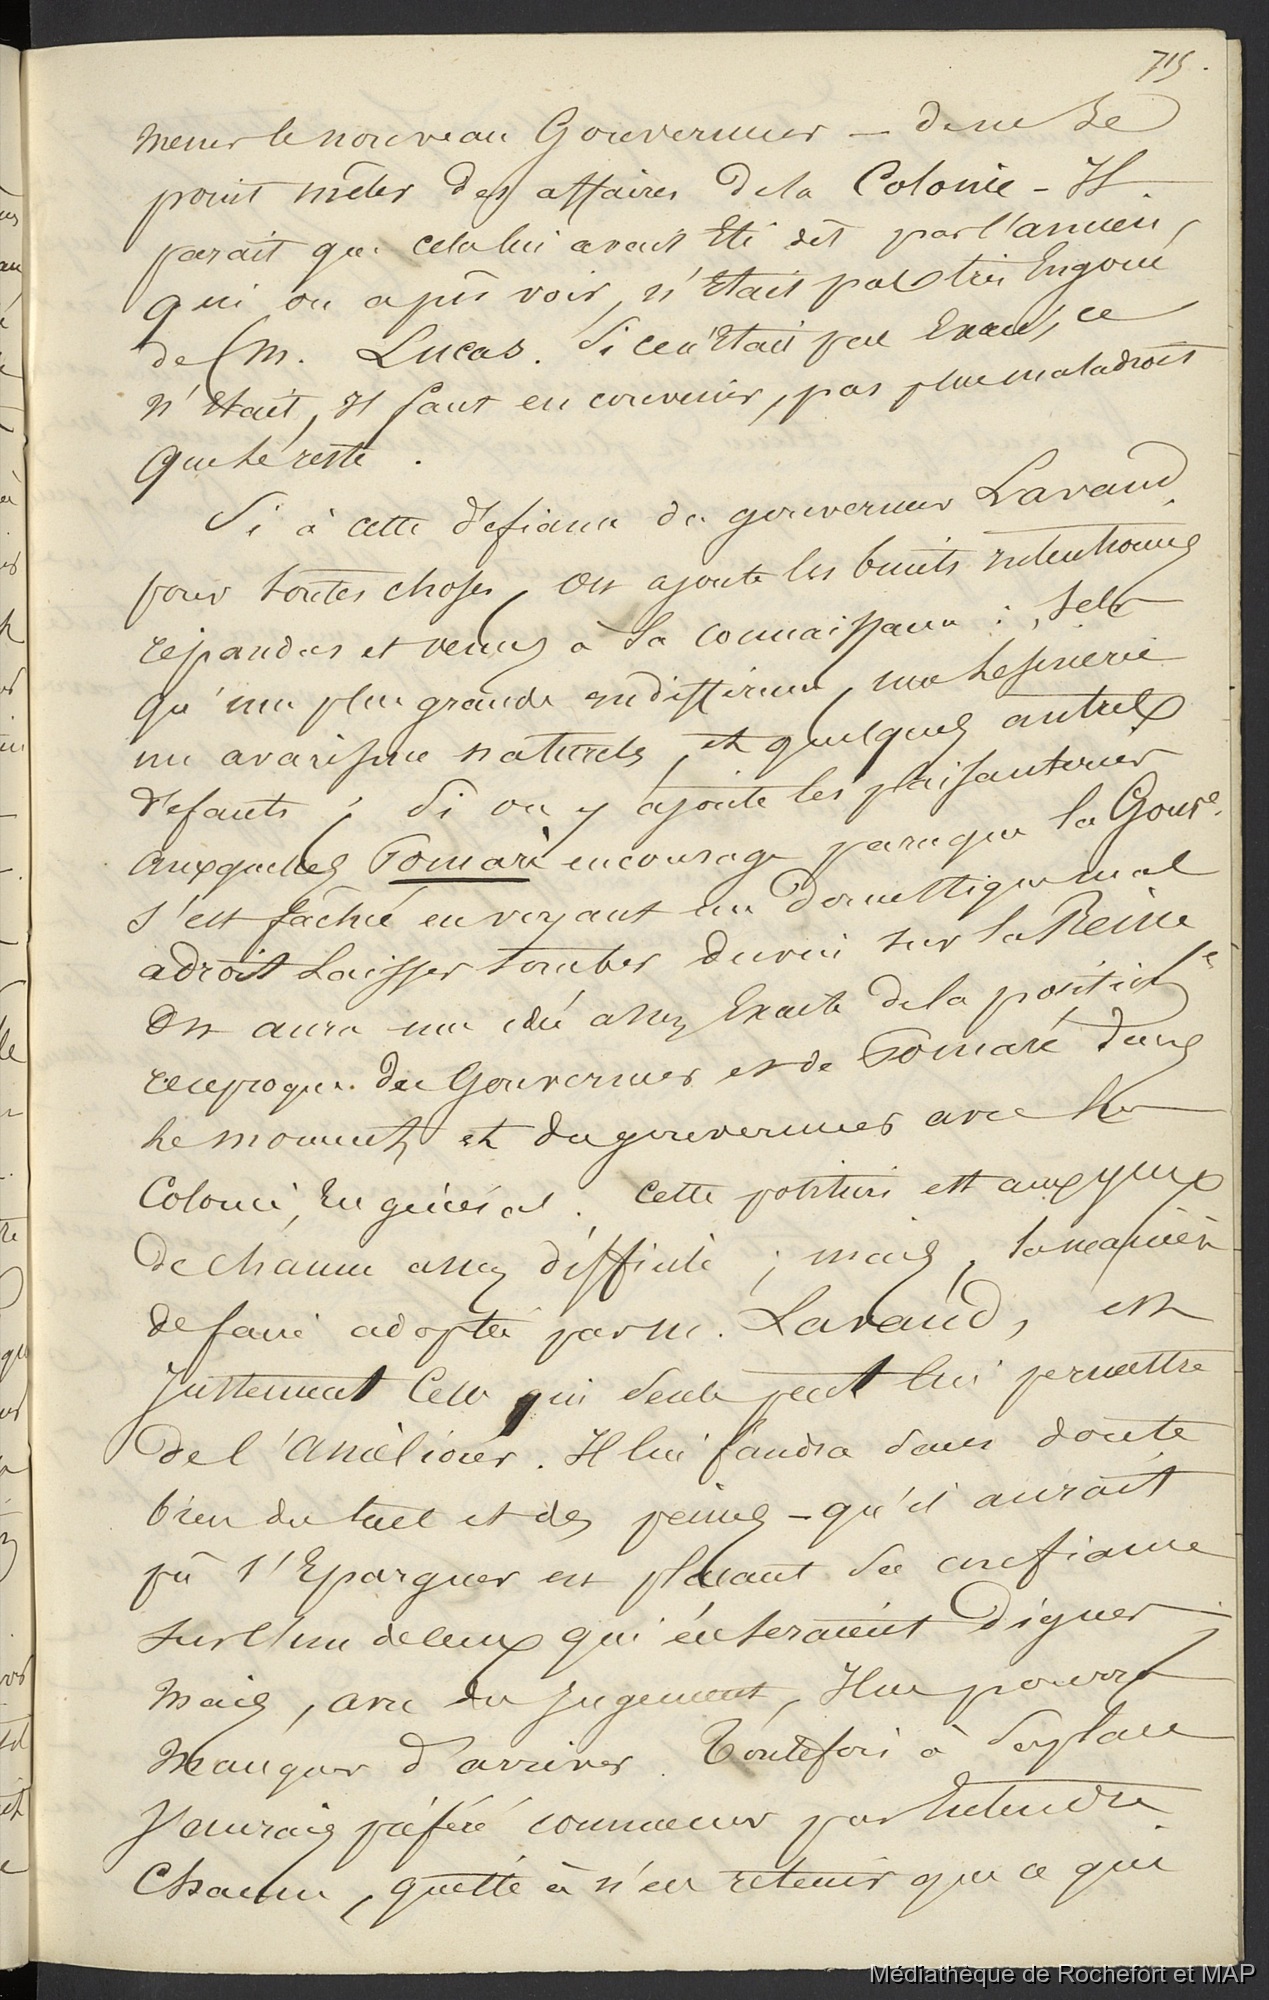 715.
mener le nouveau Gouverneur — de ne se
point mêler des affaires de la Colonie - Il
parait que cela lui avait Eté dit par l'ancien,
qui on a pu voir, n'Etait pas très Engoué
de M. Lucas. Si ce n'Etait pas Exact, ce
n'Etait, Il faut en convenir, pas plus maladroit
que le reste.
Si à cette défiance du gouverneur Lavaud
pour toutes choses, on ajoute les bruits
répandus et venus à sa connaissance ; tels
qu'une plus grande indifférence, une lésinerie
un avarisme naturels, et quelques autres
défauts ; Si on y ajoute les plaisanteries
auxquelles Pomaré encourage parceque le Gouvr.
s'est fâché en voyant un domestique mal
adroit laisser tomber du vin sur la Reine
On aura une idée assez Exacte de la position
réciproque du Gouverneur et de Pomaré dans
le moment, et du gouverneur avec la
Colonie, En général. Cette position est aux yeux
de chacun assez difficile ; mais, la manière
de faire adoptée par M. Lavaud, est
justement celle qui seule peut lui permettre
de l'améliorer. Il lui faudra sans doute
bien du tact et des peines - qu'il aurait
pû s'Epargner en plaçant sa confiance
sur l'un de ceux qui en seraient dignes
Mais, avec du jugement, Il ne pourra
manquer d'arriver. Toutefois à sa place
J'aurais préféré commencer par Entendre
Chacun, quitte à n'en retenir que ce qui
Médiathèque de Rochefort et MAP